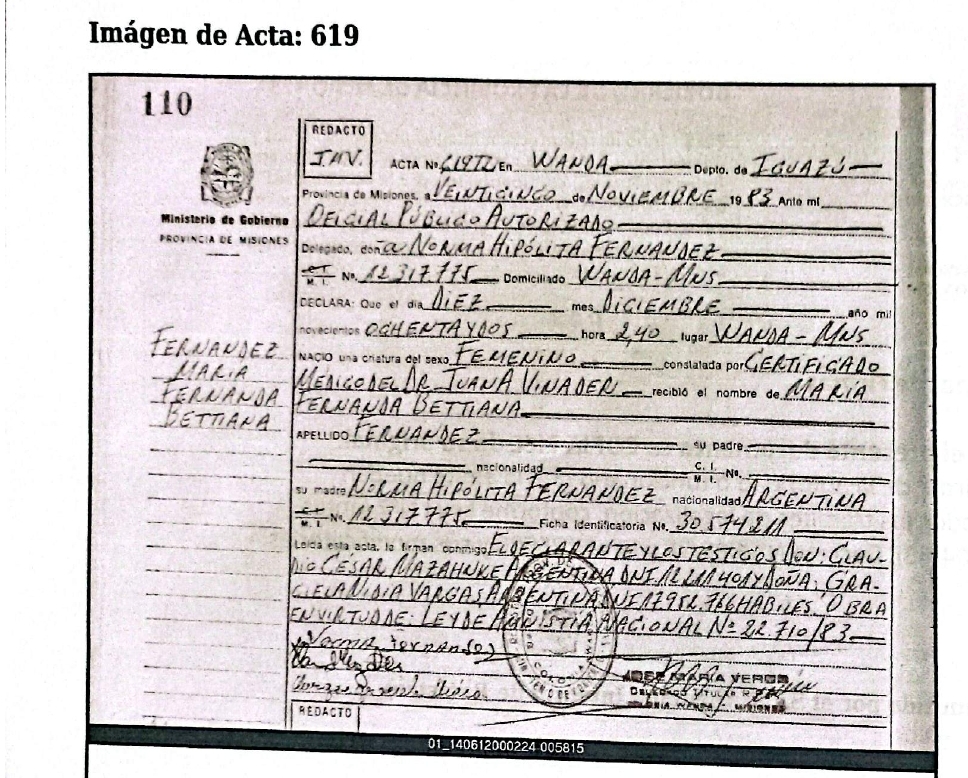 Imágen de Acta: 619
110
REDACTO
INV.
ACTA Nº 619TI En WANDA Depto. de IGUAZÚ
Provincia de Misiones, a VEINTICINCO de NOVIEMBRE 19 83 Ante mi
OFICIAL PÚBLICO AUTORIZADO
Delegado, don a NORMA HIPÓLITA FERNANDEZ
C.I. M. I. Nº. 12.317.775 Domiciliado WANDA-MNS
DECLARA: Que el día DIEZ mes DICIEMBRE año mil
novecientos OCHENTA Y DOS hora 2,40 lugar WANDA-MNS
NACIO una criatura del sexo FEMENINO constatada por CERTIFICADO
MÉDICO DEL DR. JUAN A VINADER recibió el nombre de MARÍA
FERNANDA BETTIANA
APELLIDO FERNANDEZ su padre
nacionalidad C. I. M. I. Nº.
su madre NORMA HIPÓLITA FERNANDEZ nacionalidad ARGENTINA
C.I. M. I. Nº. 12.317.775 Ficha Identificatoria Nº. 30.574.211
Leída esta acta, la firman conmigo EL DECLARANTE Y LOS TESTIGOS DON: CLAU-
DIO CESAR MAZAHNKE ARGENTINA DNI Y DOÑA: GRA-
CIELA NIDIA VARGAS ARGENTINA DNI HABILES. OBRA
EN VIRTUD DE: LEY DE AMNISTIA NACIONAL Nº 22.710/83
Norma Fernandez
JOSE MARIA VEROS
DELEGADO TITULAR
COLONIA WANDA - MISIONES
REDACTO
Ministerio de Gobierno
PROVINCIA DE MISIONES
FERNANDEZ
MARIA
FERNANDA
BETTIANA
01_140612000224 005815